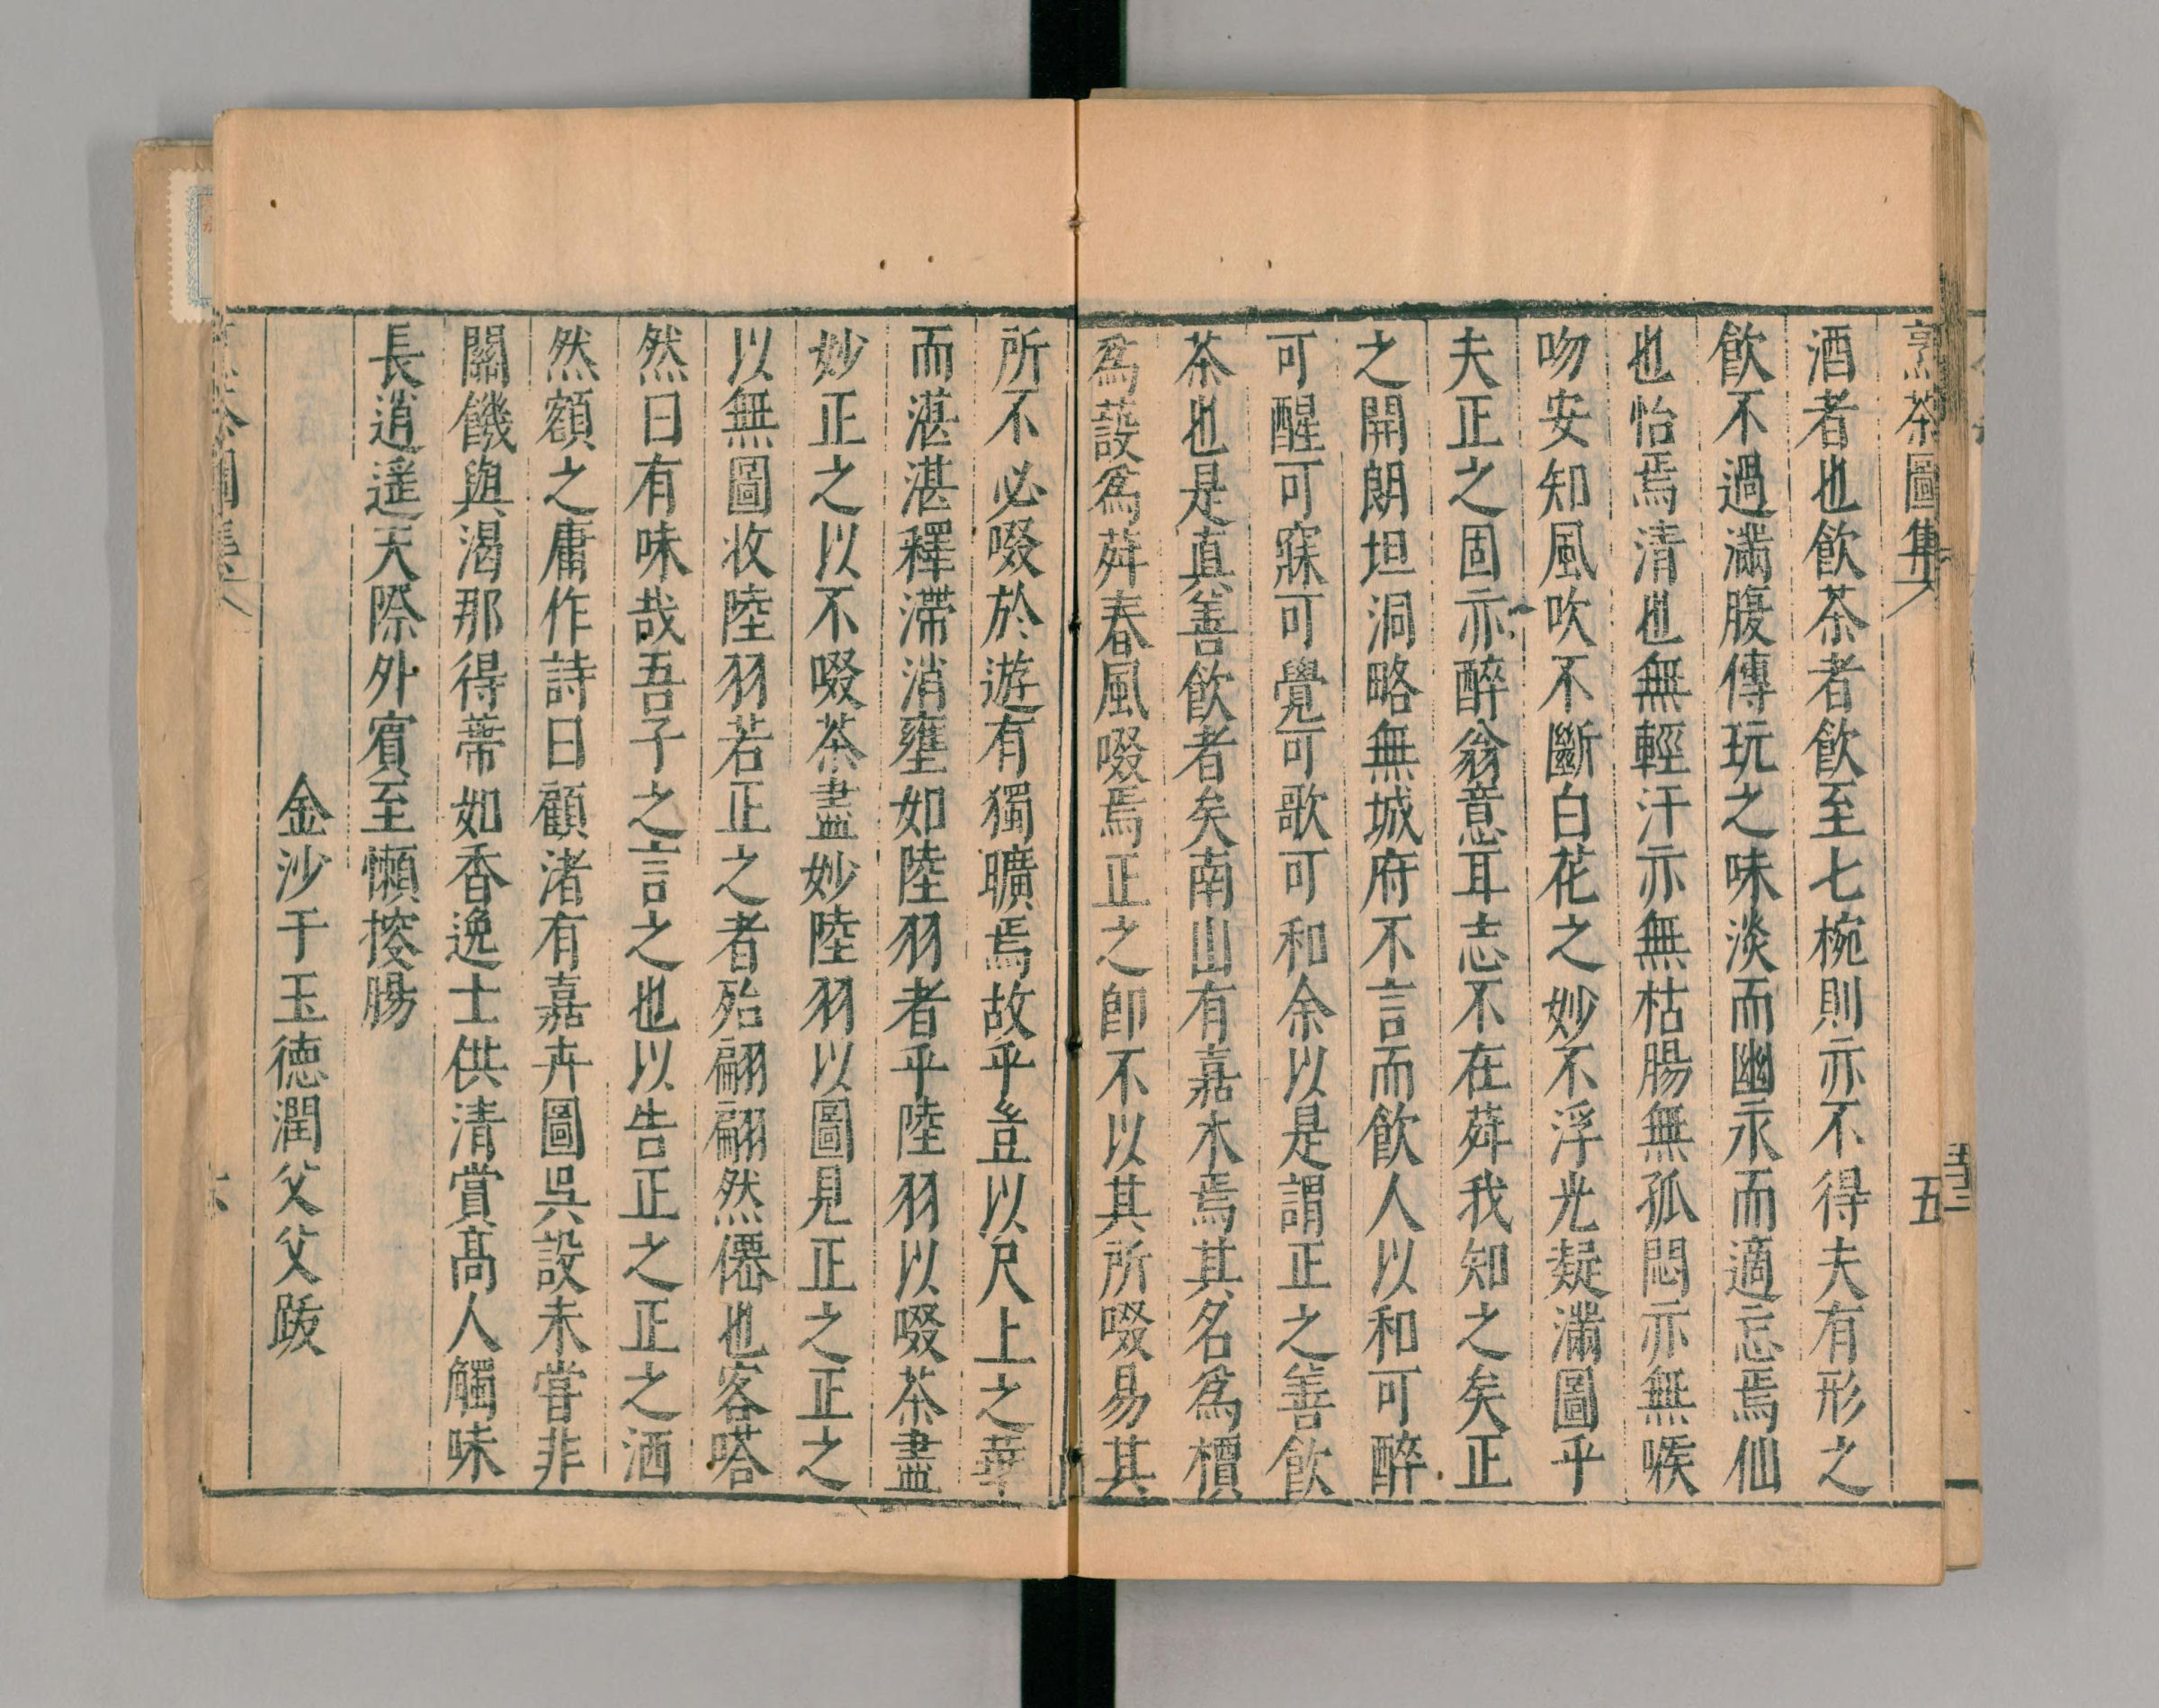 烹茶圖集
五
酒者也飲茶者飲至七椀則亦不得夫有形之
飲不過滿腹傳玩之味淡而幽永而適忘焉仙
也怡焉清也無輕汗亦無枯腸無孤悶亦無喉
吻安知風吹不斷白花之妙不浮光凝滿圖乎
夫正之固亦醉翁意耳志不在荈我知之矣正
之開朗坦洞略無城府不言而飲人以和可醉
可醒可寐可覺可歌可和余以是謂正之善飲
茶也是真善飲者矣南山有嘉木焉其名爲檟
爲蔎爲荈春風啜焉正之即不以其所啜易其
所不必啜於遊有獨曠焉故乎豈以尺上之華
而湛湛釋滯消壅如陸羽者乎陸羽以啜茶盡
妙正之以不啜茶盡妙陸羽以圖見正之正之
以無圖收陸羽若正之者殆翩翩然僊也客嗒
然曰有味哉吾子之言之也以告正之正之洒
然額之庸作詩曰顧渚有嘉卉圖吳設未嘗非
關饑與渴那得蒂如香逸士供清賞高人觸味
長逍遥天際外賓至懶搜腸
金沙于玉德潤父父跋